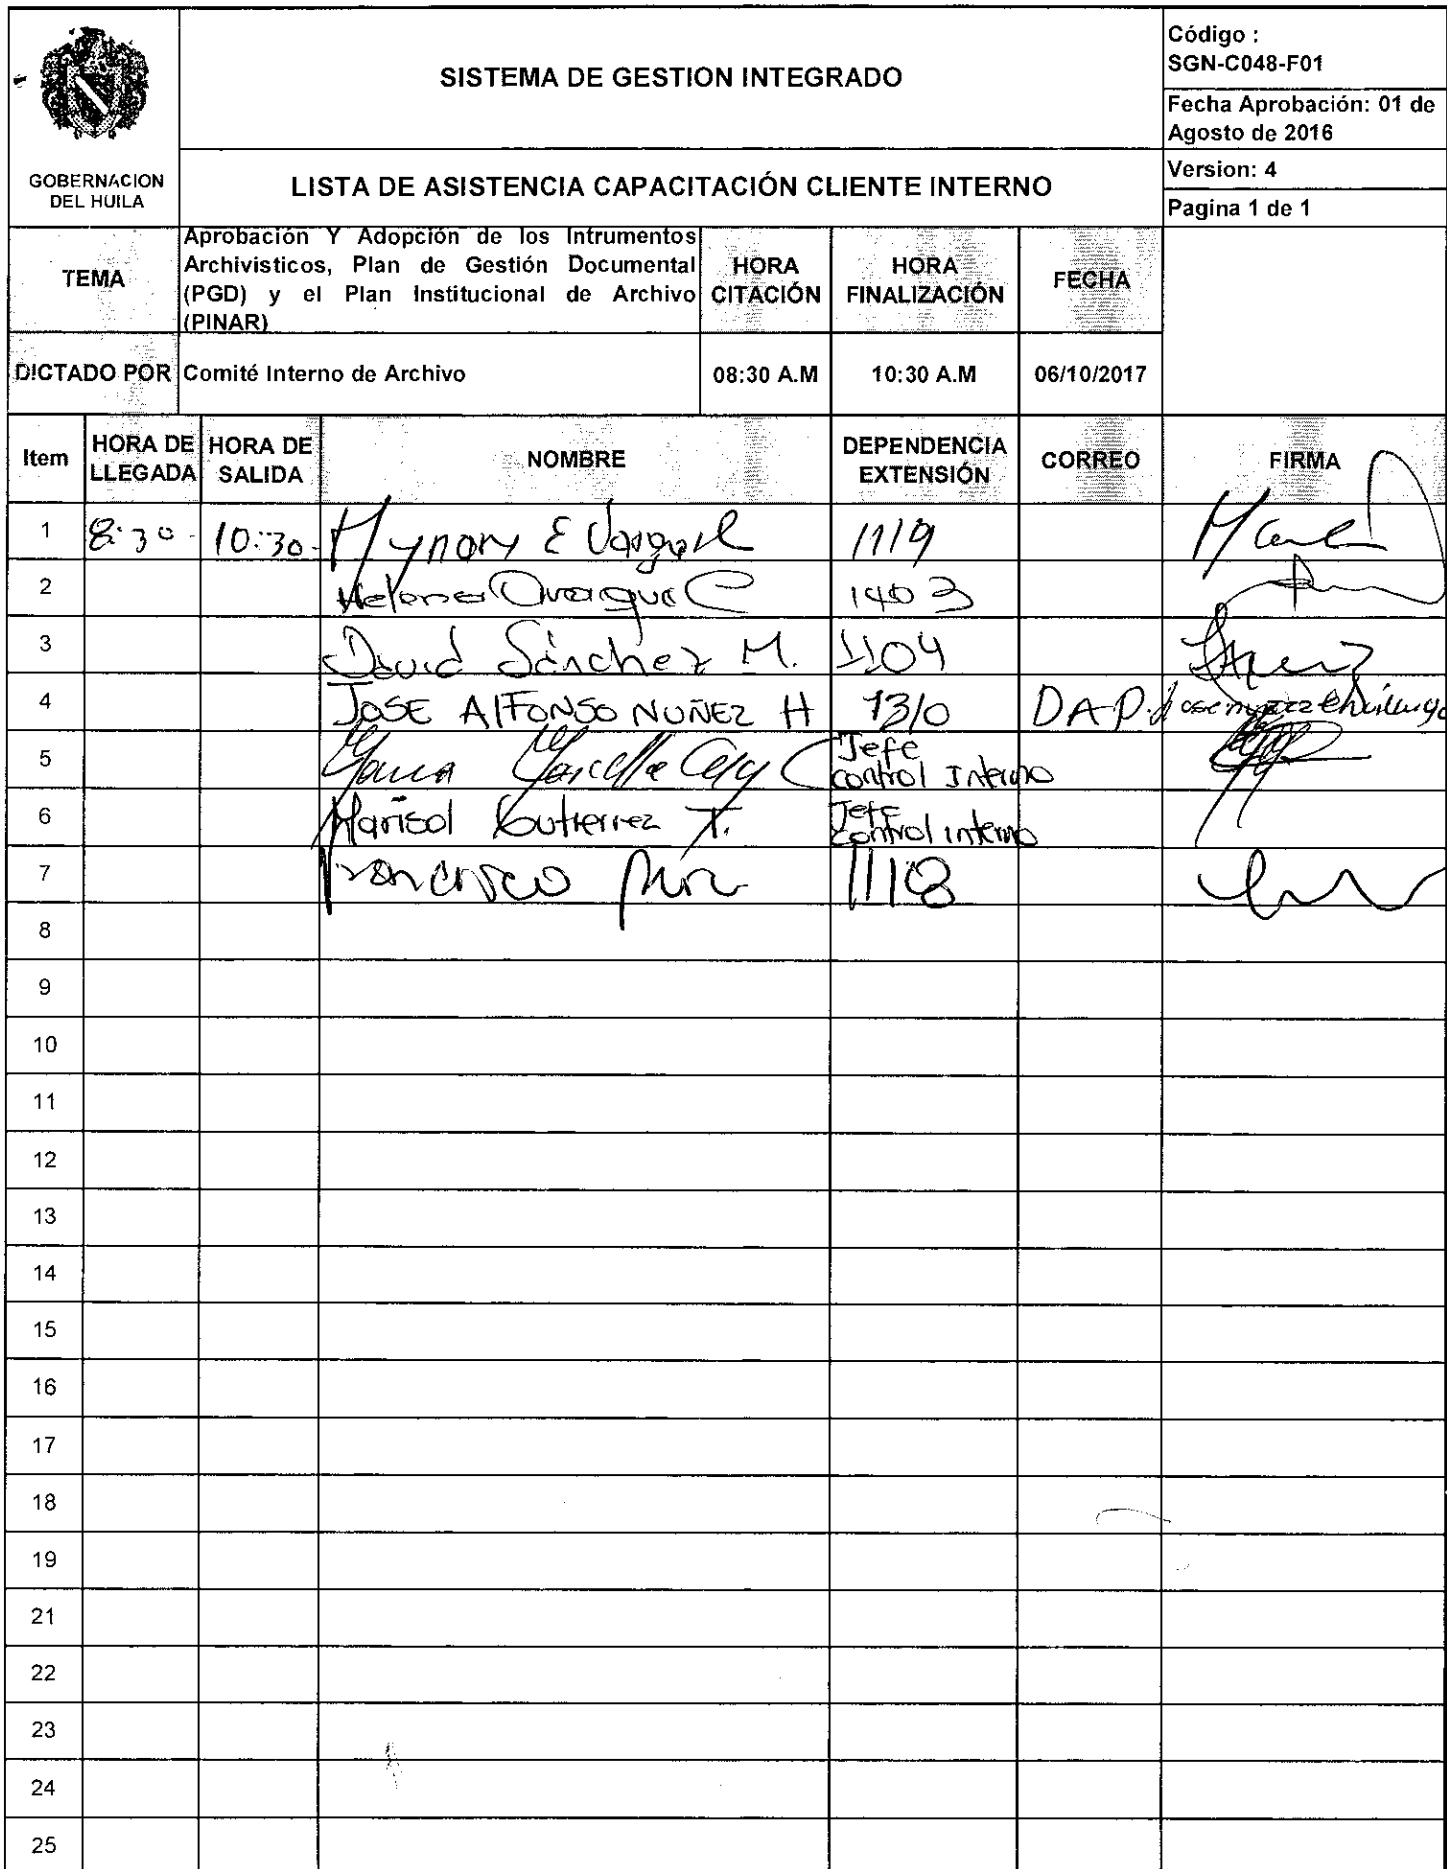 GOBERNACION
DEL HUILA
SISTEMA DE GESTION INTEGRADO
LISTA DE ASISTENCIA CAPACITACIÓN CLIENTE INTERNO
Código :
SGN-C048-F01
Fecha Aprobación: 01 de
Agosto de 2016
Version: 4
Pagina 1 de 1
TEMA
Aprobación Y Adopción de los Intrumentos
Archivisticos, Plan de Gestión Documental
(PGD) y el Plan Institucional de Archivo
(PINAR)
HORA CITACIÓN
HORA FINALIZACIÓN
FECHA
DICTADO POR Comité Interno de Archivo 08:30 A.M 10:30 A.M 06/10/2017
Item HORA DE LLEGADA HORA DE SALIDA NOMBRE DEPENDENCIA EXTENSIÓN CORREO FIRMA
1 8:30 10:30 E 1119
2 1403
3 David Sánchez M. 1104
4 JOSE AlFONSO NUÑEZ H 1310 DAP.
5 Jefe control Interno
6 Marisol Gutierrez T. Jefe control interno
7 Francisco 1118
8
9
10
11
12
13
14
15
16
17
18
19
21
22
23
24
25